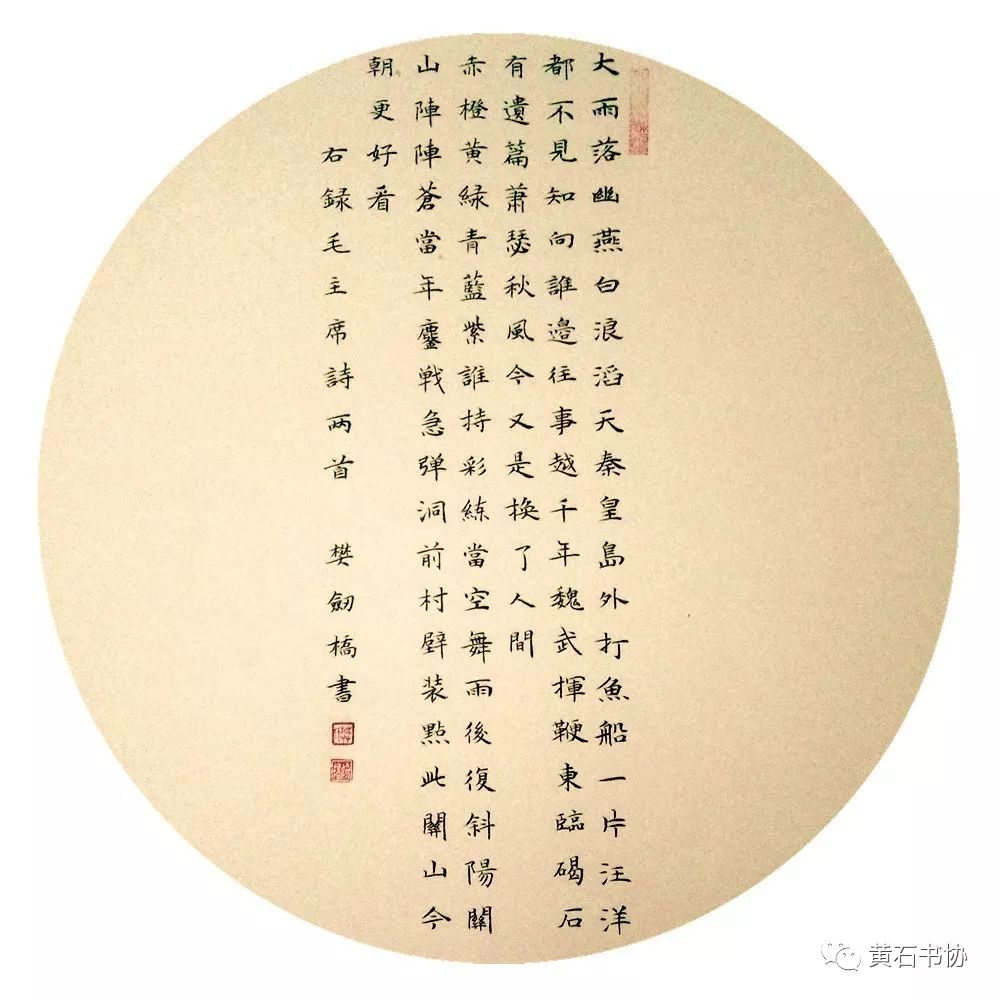 大雨落幽燕白浪滔天秦皇島外打魚船一片汪洋
都不見知向誰邊往事越千年魏武揮鞭東臨碣石
有遺篇蕭瑟秋風今又是換了人間
赤橙黄緑青藍紫誰持彩練當空舞雨後復斜陽關
山陣陣蒼當年鏖戦急弾洞前村壁装點此關山今
朝更好看
右録毛主席詩兩首 樊劒橋書
黄石书协